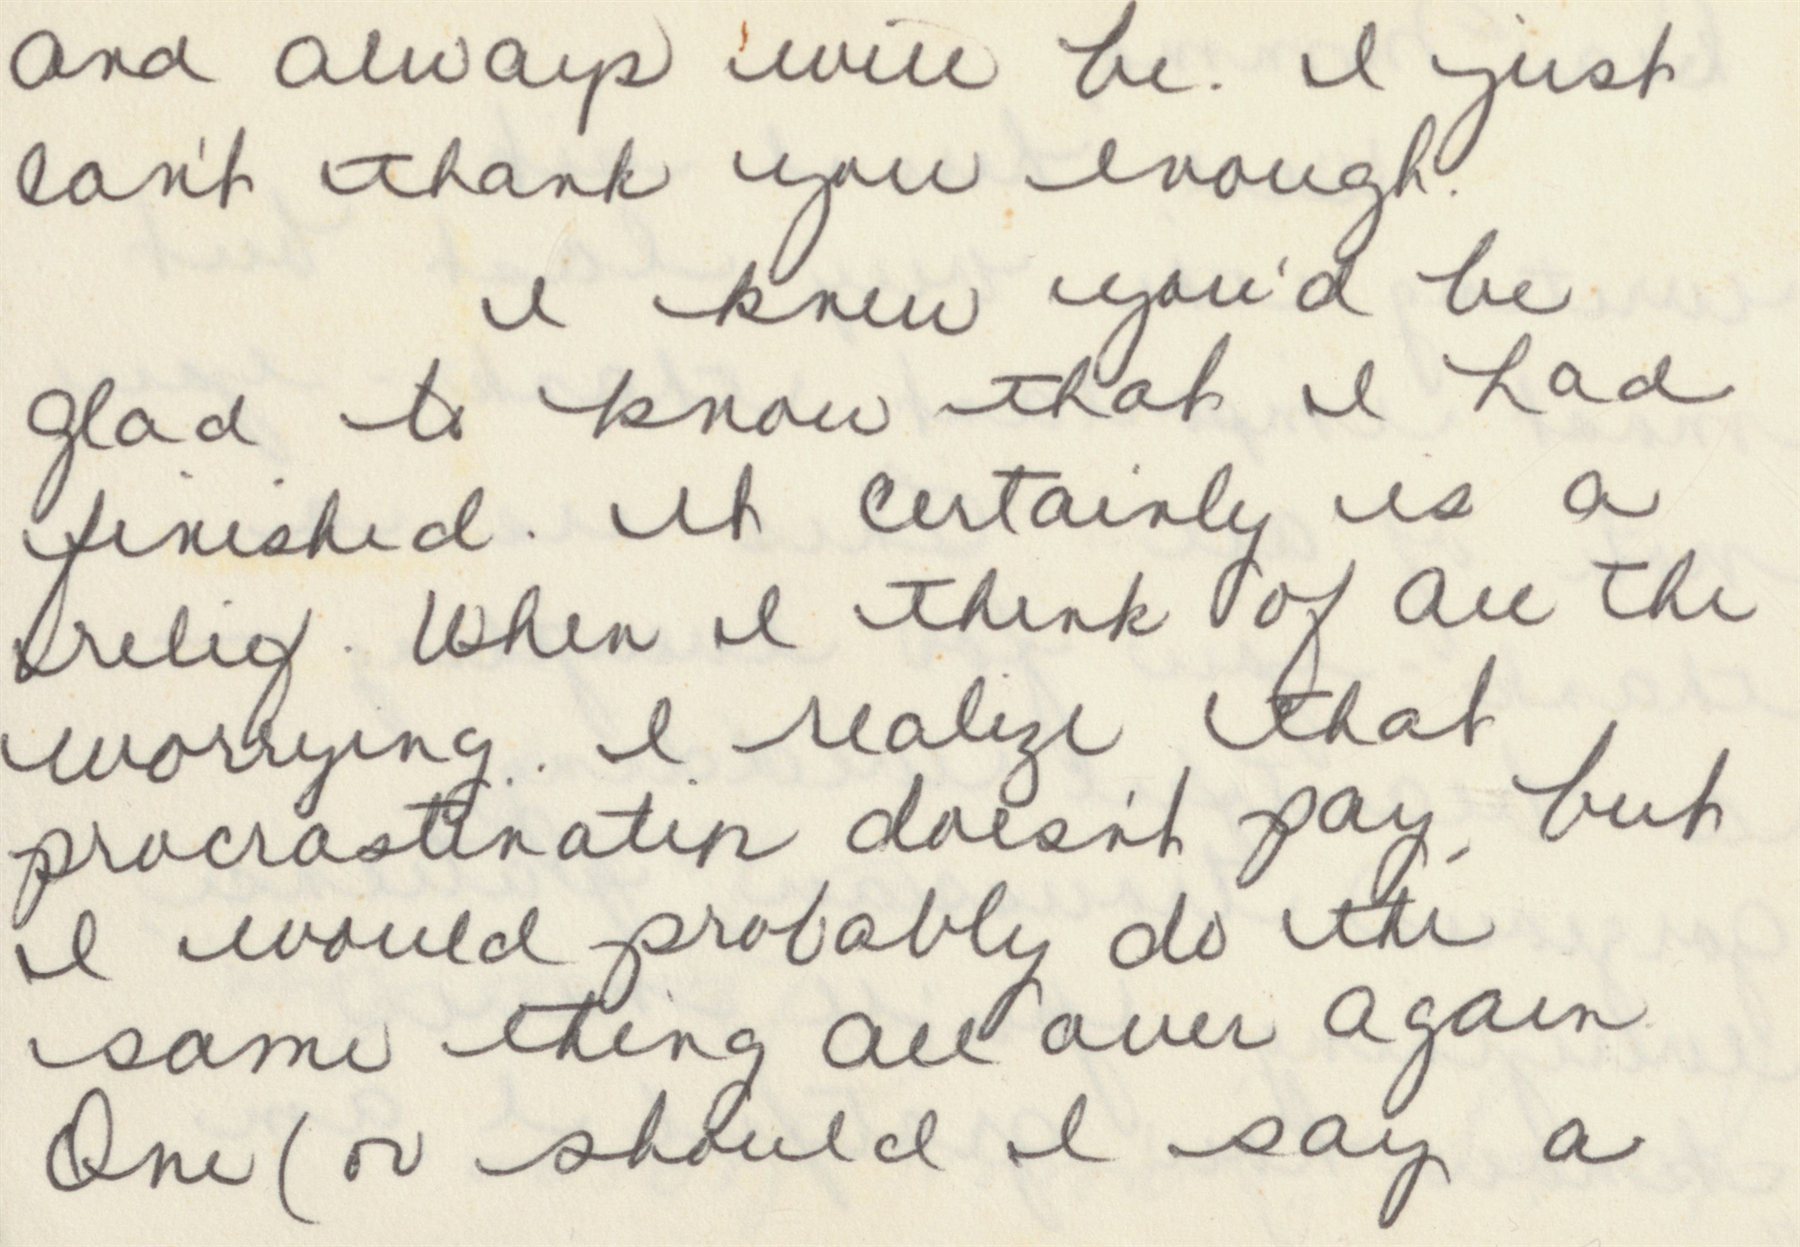 and always will be. I just
can't thank you enough.
I knew you'd be
glad to know that I had
finished. It certainly is a
relief. When I think of all the
worrying.. I realize that
procrastination doesn't pay, but
I would probably do the
same thing all over again.
One (or should I say a